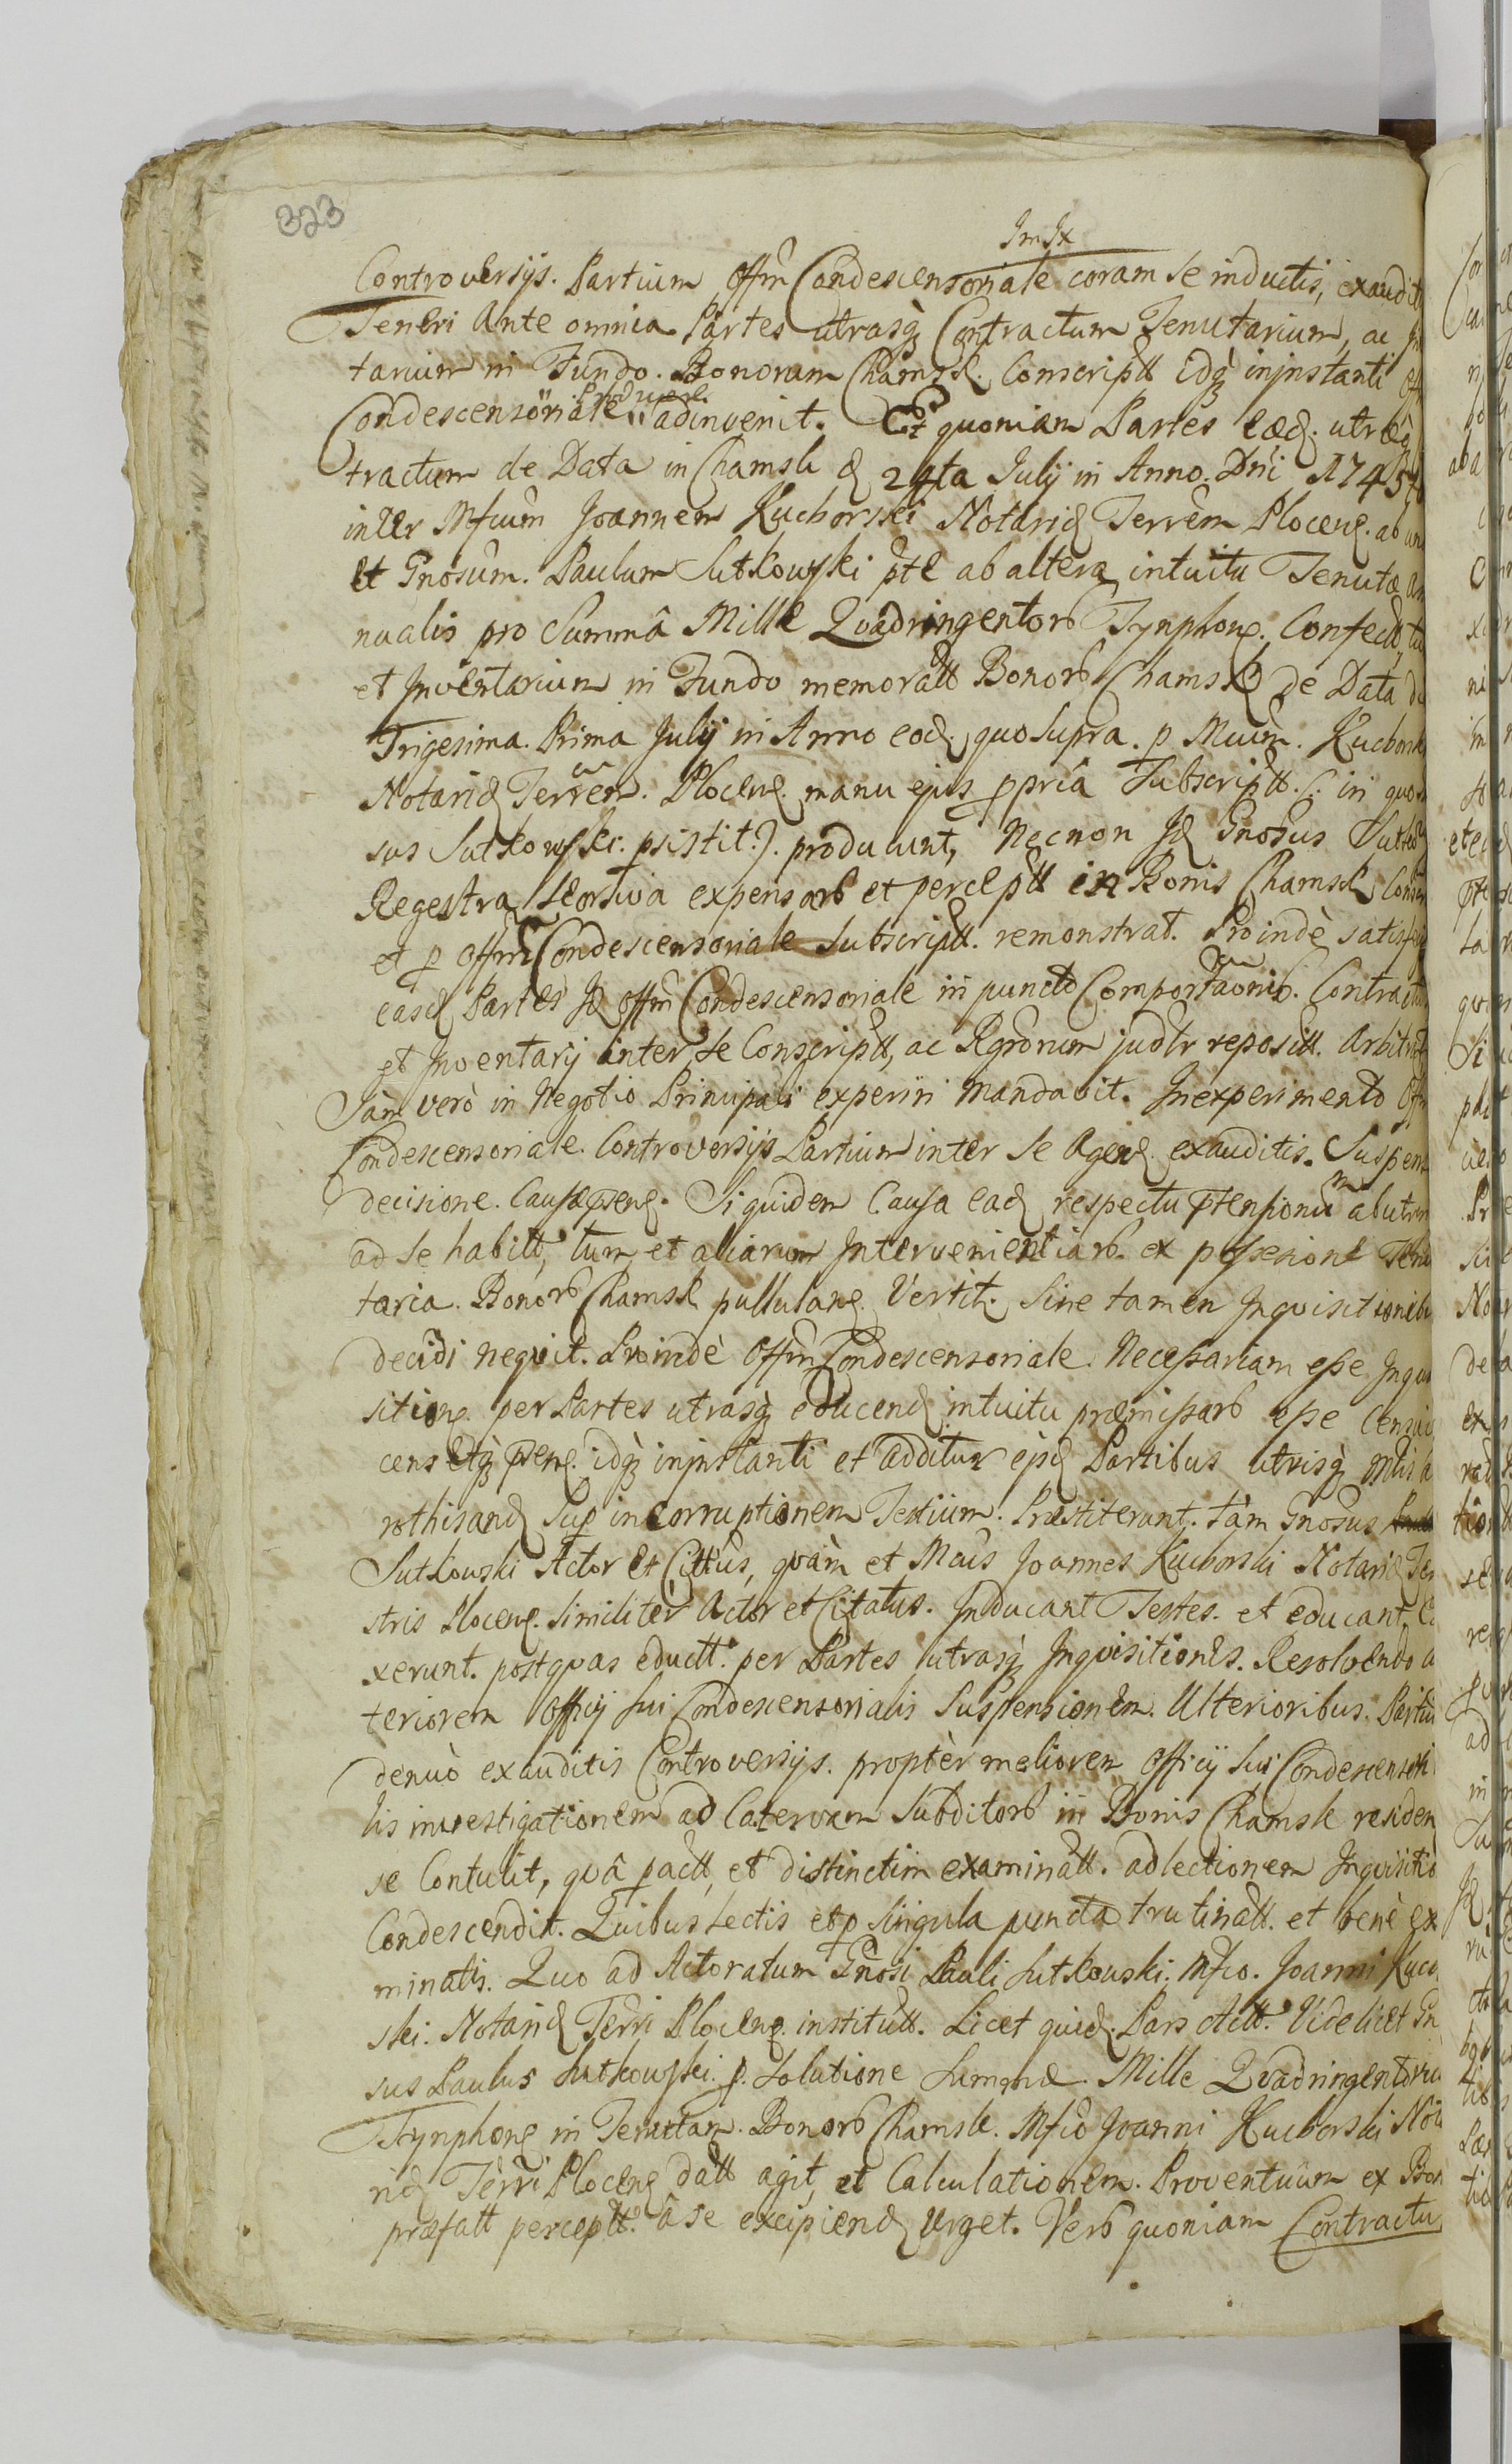 323
ImIx
Controversijs. Partium Offm Condescensoriale coram se inductis, exaudit
Teneri Ante omnia Partes utrasq Contractum Tenutarium, ac
tarium in Fundo. Bonorum Chamsk. Conscriptt idq injnstanti
producere
Condescensoriale adinvenit. Et quoniam Partes eaed. utraeq
tractum de Data in Chamsk d 24ta Julij in Anno. Dni 1745
inter Mfcum Joannem Kuchorski Notarid Terrem Plocen. ab un
et Gnosum. Paulum Sutkowski pte ab altera intuitu Tenutae an
nualis pro Summâ Mille Quadringentor Tynphon. Confect,
et Inventarium in Fundo memoratt Bonor Chamsk de Data
Trigesima. Prima Julij in Anno eod. quo supra. p Mcum. Kuchorsk
Notarid Terrem. Plocen. manu ejus ppriâ Subscriptt. (. in quo
sus Sutkowski. psistit.). producunt, Necnon Id Gnosus Sutko
Regestra seorsiva expensar et perceptt in Bonis Chamsk
et p Offm Condescensoriale Subscriptt. remonstrat. Proindè satisf
easd Partes Id Offm Condescensoriale in puncto Comportaonis. Contractu
et Inventarij inter se Conscriptt, ac Rgrorum judlr repositt. Arbitr
Jàm verò in Negotio Principali experiri mandavit. Inexperimento Offm
Condescensoriale. Controversijs Partium inter se Agen. exauditis. Suspens
decisione. Causae psen. Siquidem Causa ead respectu ptensionum ab utrin
ad se habitt, tum et aliarum Intervenientiar. ex possesione Tenu
taria. Bonor Chamsk pullulan. Vertit. Sine tamen Inquisitionib
decidi nequit. Proindè Offm Condescensoriale. Necessariam esse Inqui
sition. per Partes utrasq educend intuitu praemissar esse Censui
censetq psen. idq injnstanti et additur ejsd Partibus utrisq
rothisand Sup incorruptionem Testium. Praestiterunt. tàm Gnosus
Sutkowski Actor et Cittus, quàm et Mcus Joannes Kuchorski Notarid Ter
stris Plocen. similiter Actor et Citatus. Inducant Testes. et educant.
xerunt. postquas eductt. per Partes utrasq Inquisitiones. Resolvendo a
teriorem Officij sui Condescensorialis Suspensionem. Ulterioribus. Partiu
denuò exauditis Controversijs. proptèr meliorem Officij sui Condescensori
lis investigationem ad Catervam Subditor in Bonis Chamsk residen
se Contulit, quâ pactt, et distinctim examinatt. ad lectionem Inquisitio
Condescendit. Quibus Lectis et p singula puncta trutinatt. et benè ex
minatis. Quo ad Actoratum Gnosi Pauli Sutkowski. Mfco. Joanni Kuco
ski. Notarid Terri Plocen. institutt. Licet quid. Pars Actt. Videlicet Gn
sus Paulus Sutkowski. p. Solutione Summae. Mille Quadringentoru
Tynphon in Tenutam. Bonor Chamsk. Mfco Joanni Kuchorski Nota
rid Terri Plocen datt agit, et Calculationem. Proventuum ex Bon
praefatt perceptt. â se excipiend Urget. Verò quoniam Contractu